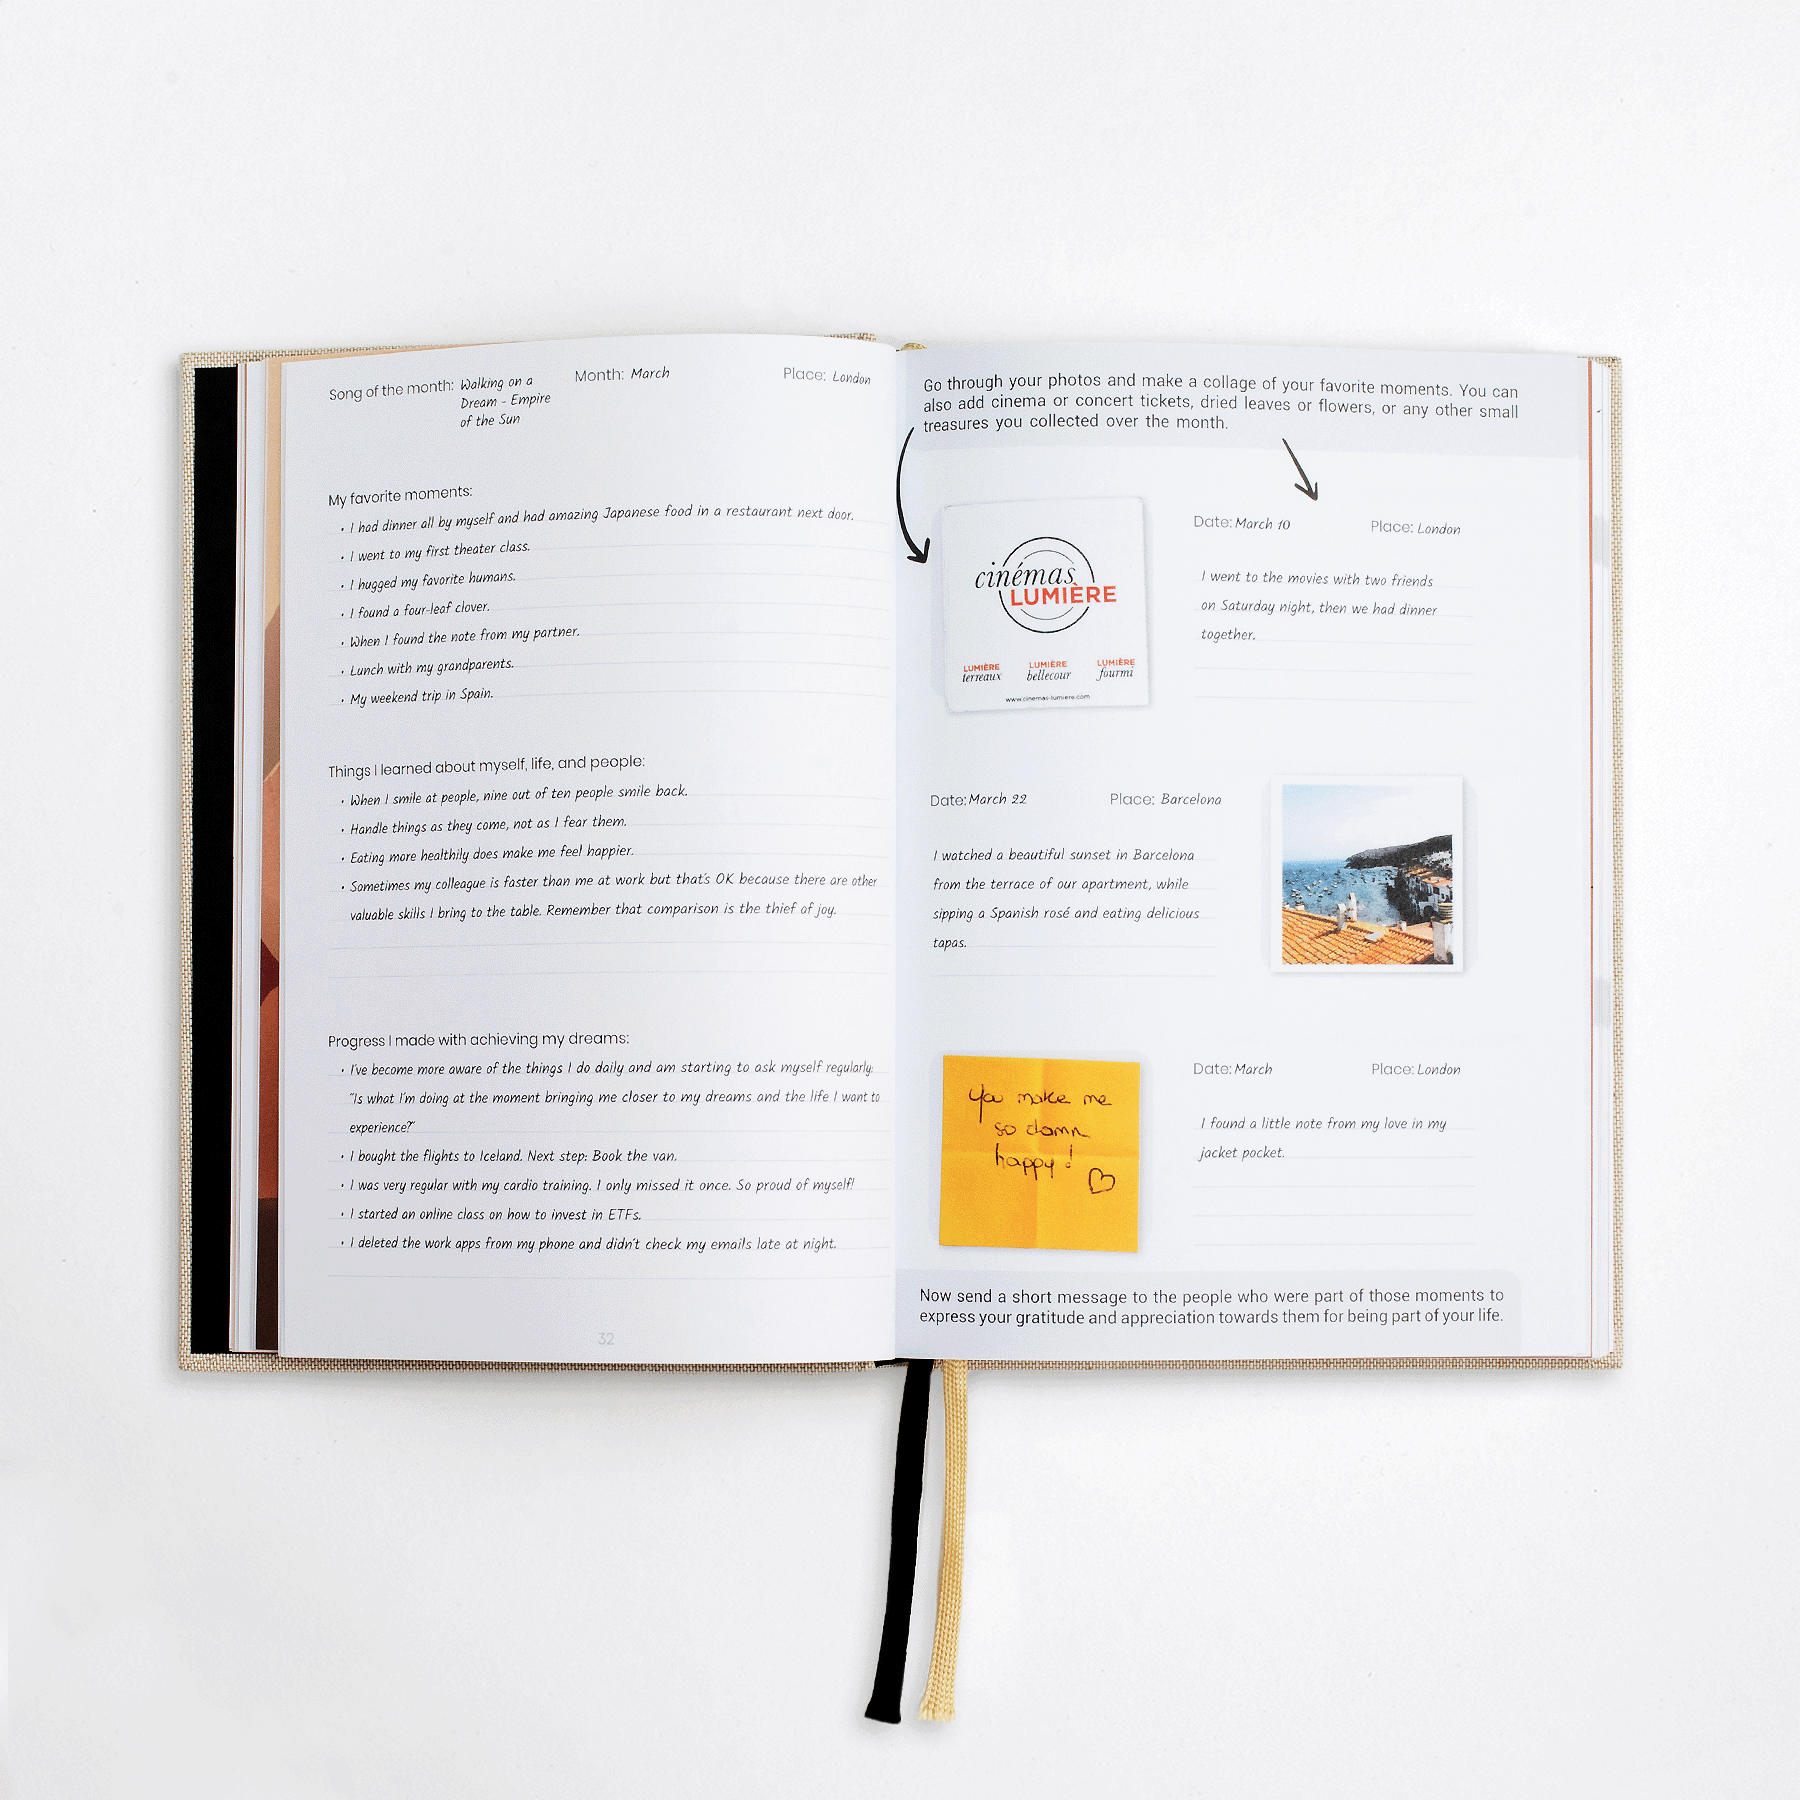 Song of the month: Walking on a
Dream - Empire
of the Sun
Month: March
Place: London
My favorite moments:
• I had dinner all by myself and had amazing Japanese food in a restaurant next door.
• I went to my first theater class.
• I hugged my favorite humans.
• I found a four-leaf clover.
• When I found the note from my partner.
• Lunch with my grandparents.
• My weekend trip in Spain.
Things I learned about myself, life, and people:
• When I smile at people, nine out of ten people smile back.
• Handle things as they come, not as I fear them.
• Eating more healthily does make me feel happier.
• Sometimes my colleague is faster than me at work but that's OK because there are other
valuable skills I bring to the table. Remember that comparison is the thief of joy.
Progress I made with achieving my dreams:
• I've become more aware of the things I do daily and am starting to ask myself regularly:
"Is what I'm doing at the moment bringing me closer to my dreams and the life I want to
experience?"
• I bought the flights to Iceland. Next step: Book the van.
• I was very regular with my cardio training. I only missed it once. So proud of myself!
• I started an online class on how to invest in ETFs.
• I deleted the work apps from my phone and didn't check my emails late at night.
32
Go through your photos and make a collage of your favorite moments. You can
also add cinema or concert tickets, dried leaves or flowers, or any other small
treasures you collected over the month.
cinémas
LUMIÈRE
LUMIÈRE
terreaux
LUMIÈRE
bellecour
LUMIÈRE
fourmi
www.cinemas-lumiere.com
Date: March 10
Place: London
I went to the movies with two friends
on Saturday night, then we had dinner
together.
Date: March 22
Place: Barcelona
I watched a beautiful sunset in Barcelona
from the terrace of our apartment, while
sipping a Spanish rosé and eating delicious
tapas.
You make me
so damn
happy!
Date: March
Place: London
I found a little note from my love in my
jacket pocket.
Now send a short message to the people who were part of those moments to
express your gratitude and appreciation towards them for being part of your life.